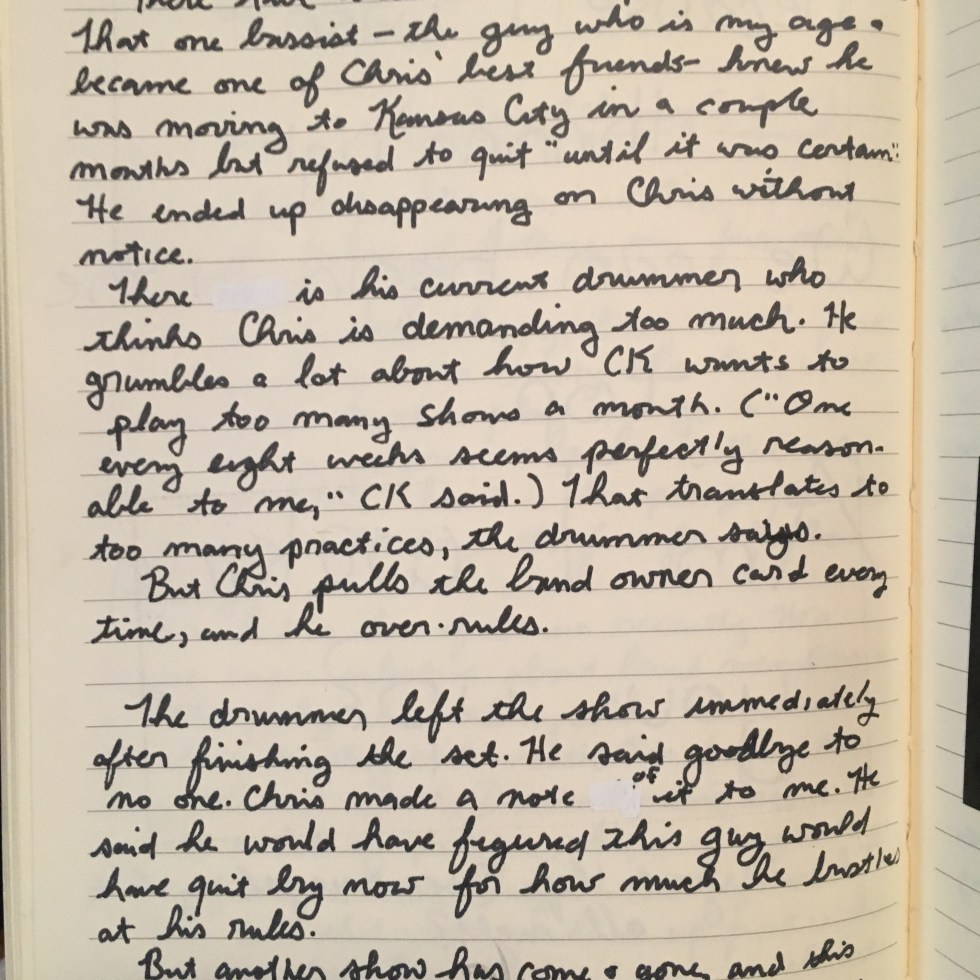 There have
That one bassist – the guy who is my age &
became one of Chris' best friends – knew he
was moving to Kansas City in a couple
months but refused to quit "until it was certain".
He ended up disappearing on Chris without
notice.
There is his current drummer, who
thinks Chris is demanding too much. He
grumbles a lot about how CK wants to
play too many shows a month. ("One
every eight weeks seems perfectly reason-
able to me," CK said.) That translates to
too many practices, the drummer says.
But Chris pulls the band owner card every
time, and he over-rules.
The drummer left the show immediately
after finishing the set. He said goodbye to
no one. Chris made a note of it to me. He
said he would have figured this guy would
have quit by now for how much he bustles
at his rules.
But another show has come & gone, and this